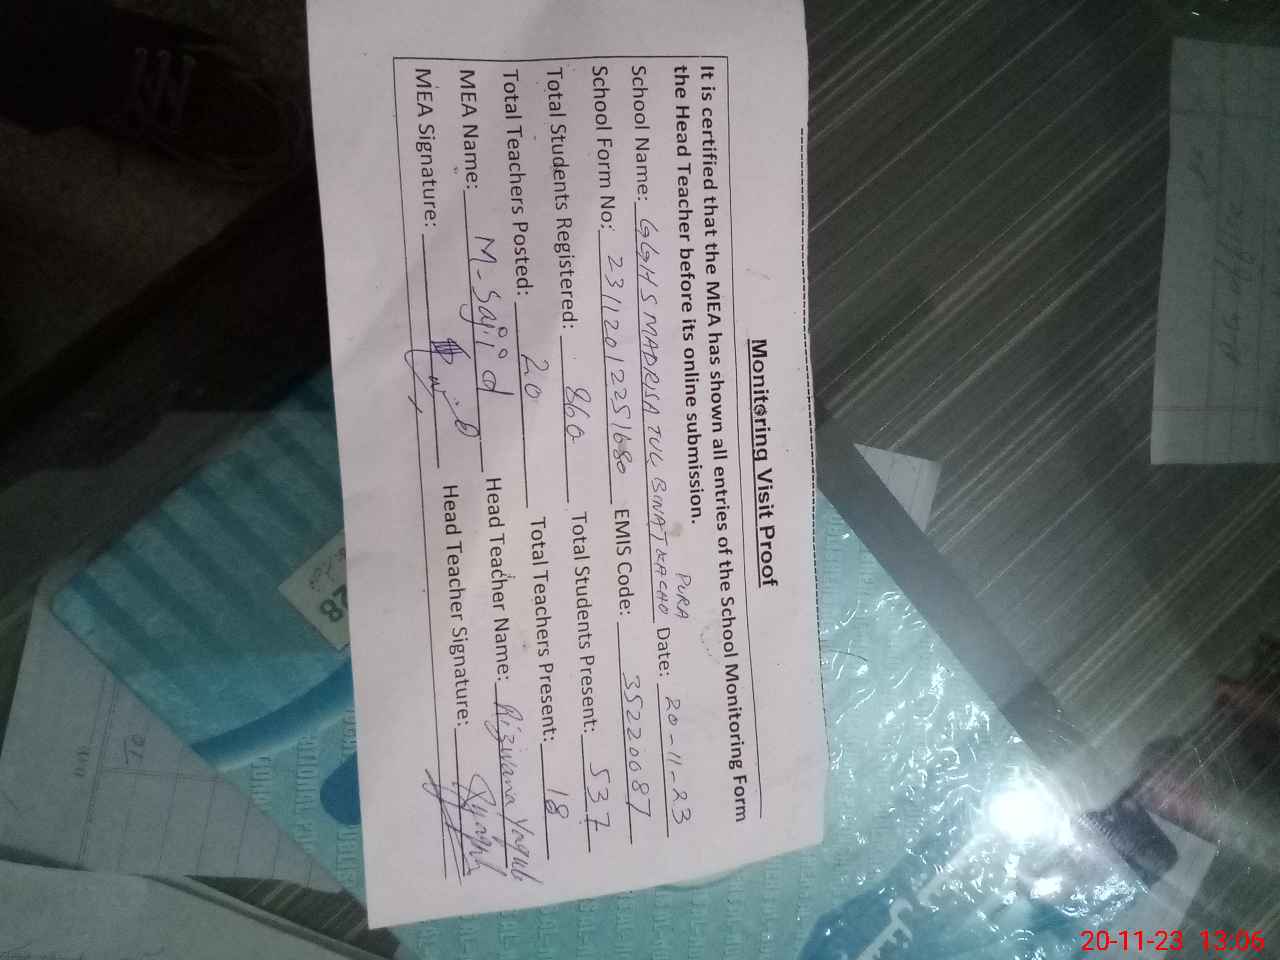 Monitoring Visit Proof
It is certified that the MEA has shown all entries of the School Monitoring Form
the Head Teacher before its online submission.
PURA
School Name: GGHS MADRISA TUL BNAT KACHO Date: 20-11-23
School Form No: 231120122251680 EMIS Code: 35220087
Total Students Registered: 860 Total Students Present: 537
Total Teachers Posted: 20 Total Teachers Present: 18
MEA Name: M-Sajid Head Teacher Name: Rizwana Yaqub
MEA Signature: Head Teacher Signature:
20-11-23 13:06